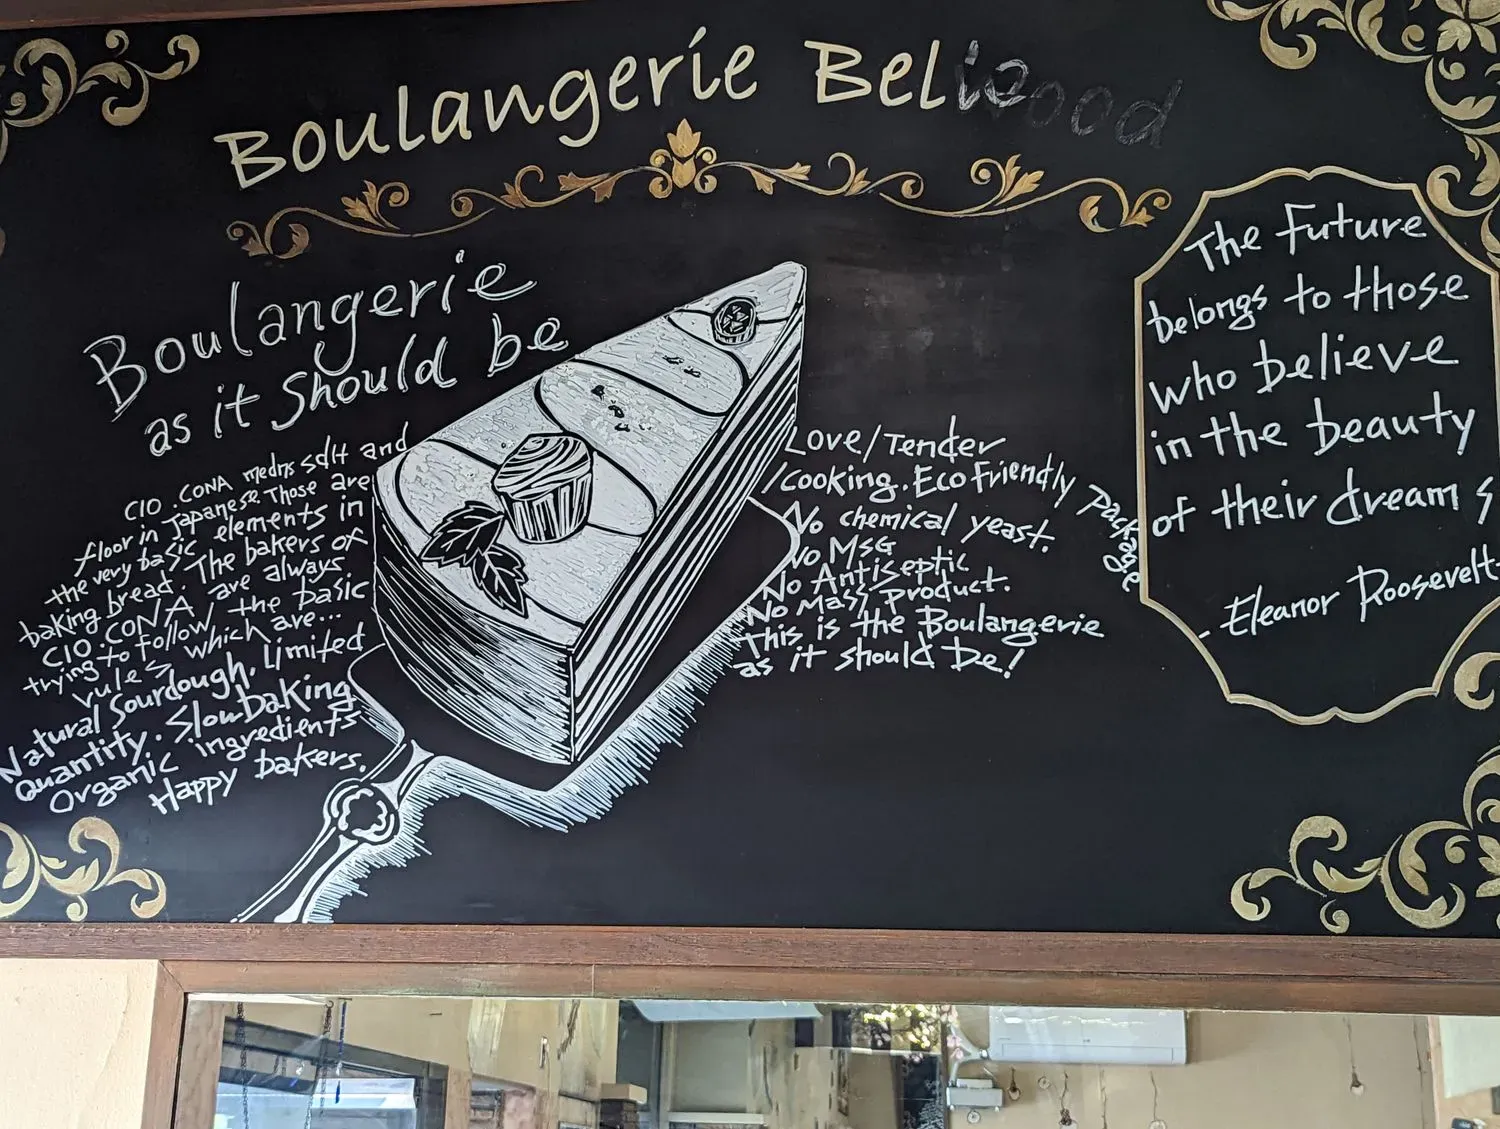 Boulangerie Bellwood
Boulangerie
as it Should be
CIO CONA means salt and
floor in Japanese. Those are
the very basic elements in
baking bread. The bakers of
CIO CONA are always
trying to follow the basic
rules which are...
Natural Sourdough. Limited
Quantity. Slow baking
Organic ingredients
Happy bakers.
Love/Tender
/Cooking. Eco Friendly Package
No chemical yeast.
No MSG
No Antiseptic
No Mass product.
This is the Boulangerie
as it should be!
The Future
belongs to those
who believe
in the beauty
of their dreams
- Eleanor Roosevelt-